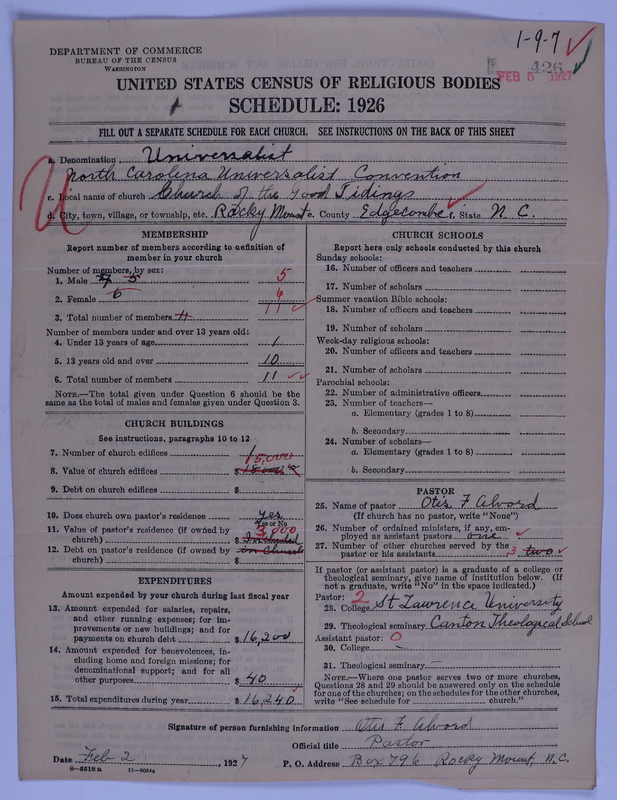 1-9-7
DEPARTMENT OF COMMERCE
BUREAU OF THE CENSUS
WASHINGTON
426
FEB 5 1927
UNITED STATES CENSUS OF RELIGIOUS BODIES
SCHEDULE: 1926
FILL OUT A SEPARATE SCHEDULE FOR EACH CHURCH. SEE INSTRUCTIONS ON THE BACK OF THIS SHEET
a. Denomination Universalist
North Carolina Universalist Convention
c. Local name of church Church of the Good Tidings
d. City, town, village, or township, etc. Rocky Mount e. County Edgecombe f. State N. C.
MEMBERSHIP
Report number of members according to definition of
member in your church
Number of members, by sex:
1. Male 5 5
2. Female 6 6
3. Total number of members 11 11
Number of members under and over 13 years old:
4. Under 13 years of age 1
5. 13 years old and over 10
6. Total number of members 11
NOTE.—The total given under Question 6 should be
the same as the total of males and females given under Question 3.
CHURCH BUILDINGS
See instructions, paragraphs 10 to 12
7. Number of church edifices 1
15,000
8. Value of church edifices $
9. Debt on church edifices $
10. Does church own pastor's residence yes
Yes or No
11. Value of pastor's residence (if owned by 3,000
church) $ Included
12. Debt on pastor's residence (if owned by in Church
church) $
EXPENDITURES
Amount expended by your church during last fiscal year
13. Amount expended for salaries, repairs,
and other running expenses; for im-
provements or new buildings; and for
payments on church debt $ 16,200
14. Amount expended for benevolences, in-
cluding home and foreign missions; for
denominational support; and for all
other purposes $ 40
15. Total expenditures during year $ 16,240
CHURCH SCHOOLS
Report here only schools conducted by this church
Sunday schools:
16. Number of officers and teachers
17. Number of scholars
Summer vacation Bible schools:
18. Number of officers and teachers
19. Number of scholars
Week-day religious schools:
20. Number of officers and teachers
21. Number of scholars
Parochial schools:
22. Number of administrative officers
23. Number of teachers—
a. Elementary (grades 1 to 8)
b. Secondary
24. Number of scholars—
a. Elementary (grades 1 to 8)
b. Secondary
PASTOR
25. Name of pastor Otis F Alvord
(If church has no pastor, write "None")
26. Number of ordained ministers, if any, em-
ployed as assistant pastors one
27. Number of other churches served by the
pastor or his assistants 3 two
If pastor (or assistant pastor) is a graduate of a college or
theological seminary, give name of institution below. (If
not a graduate, write "No" in the space indicated.)
Pastor: 2
28. College St Lawrence University
29. Theological seminary Canton Theological School
Assistant pastor: 0
30. College
31. Theological seminary
NOTE.—Where one pastor serves two or more churches,
Questions 28 and 29 should be answered only on the schedule
for one of the churches; on the schedules for the other churches,
write "See schedule for church."
Signature of person furnishing information Otis F. Alvord
Official title Pastor
Date Feb 2, 1927 P. O. Address Box 796 Rocky Mount, N.C.
8-5518a 11-9054a